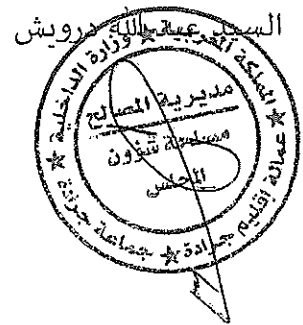 السيد عبد الله درويش
المملكة المغربية ★ وزارة الداخلية
★ عمالة إقليم جرادة ★ جماعة جرادة
مديرية المصالح
مصلحة شؤون
المجلس